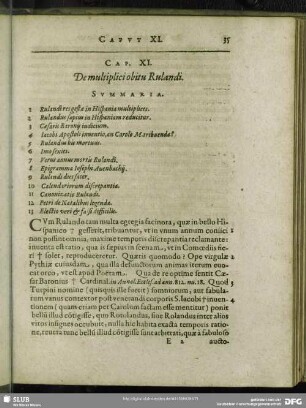 CAPVT XI. 35
CAP. XI.
De multiplici obitu Rulandi.
SVMMARIA.
1 Rulandi res gestæ in Hispania multiplices.
2 Rulandus sæpius in Hispaniam reducitur.
3 Cæsaris Baronij iudicium.
4 Iacobi Apostoli inventio, an Carolo M. tribuenda?
5 Rulandum bis mortuum.
6 Imo sexies.
7 Verus annus mortis Rulandi.
8 Epigramma Iosephi Auenbachij.
9 Rulandi dies fatur.
10 Calendariorum discrepantia.
11 Canonizatio Rulandi.
12 Petri de Natalibus legenda.
13 Electio veri & falsi difficilis.
CVm Rulando tam multa egregia facinora, quæ in bello Hi-
spanico † gessisse, tribuantur, vt in vnum annum conijci 1
non possint omnia, maxime temporis discrepantia reclamante:
inuenta est ratio, qua is sæpius in scenam, vt in Comœdiis fie-
ri † solet, reproduceretur. Quæris quomodo? Ope virgulæ 2
Pythiæ cuiusdam, qua illa defunctorum animas iterum
euocare orco, vt est apud Poetam. Qua de re optime sentit Cæ-
sar Baronius † Cardinal. in Annal. Eccles. ad ann. 812. nu. 18. Quod 3
Turpini nomine (quisquis ille fuerit) somniorum, aut fabula-
rum vanus contextor post venerandi corporis S. Iacobi † inuen- 4
tionem (quam etiam per Carolum factam esse mentitur) ponit
bellũ illud cõtigisse, quo Romlandus, siue Rolandus inter alios
viros insignes occubuit, nulla hic habita exacta temporis ratio-
ne, reuera tunc bellũ quod illud cõtigisse sunt arbitrati, quã à quo-
E 2 aucto-
SLUB